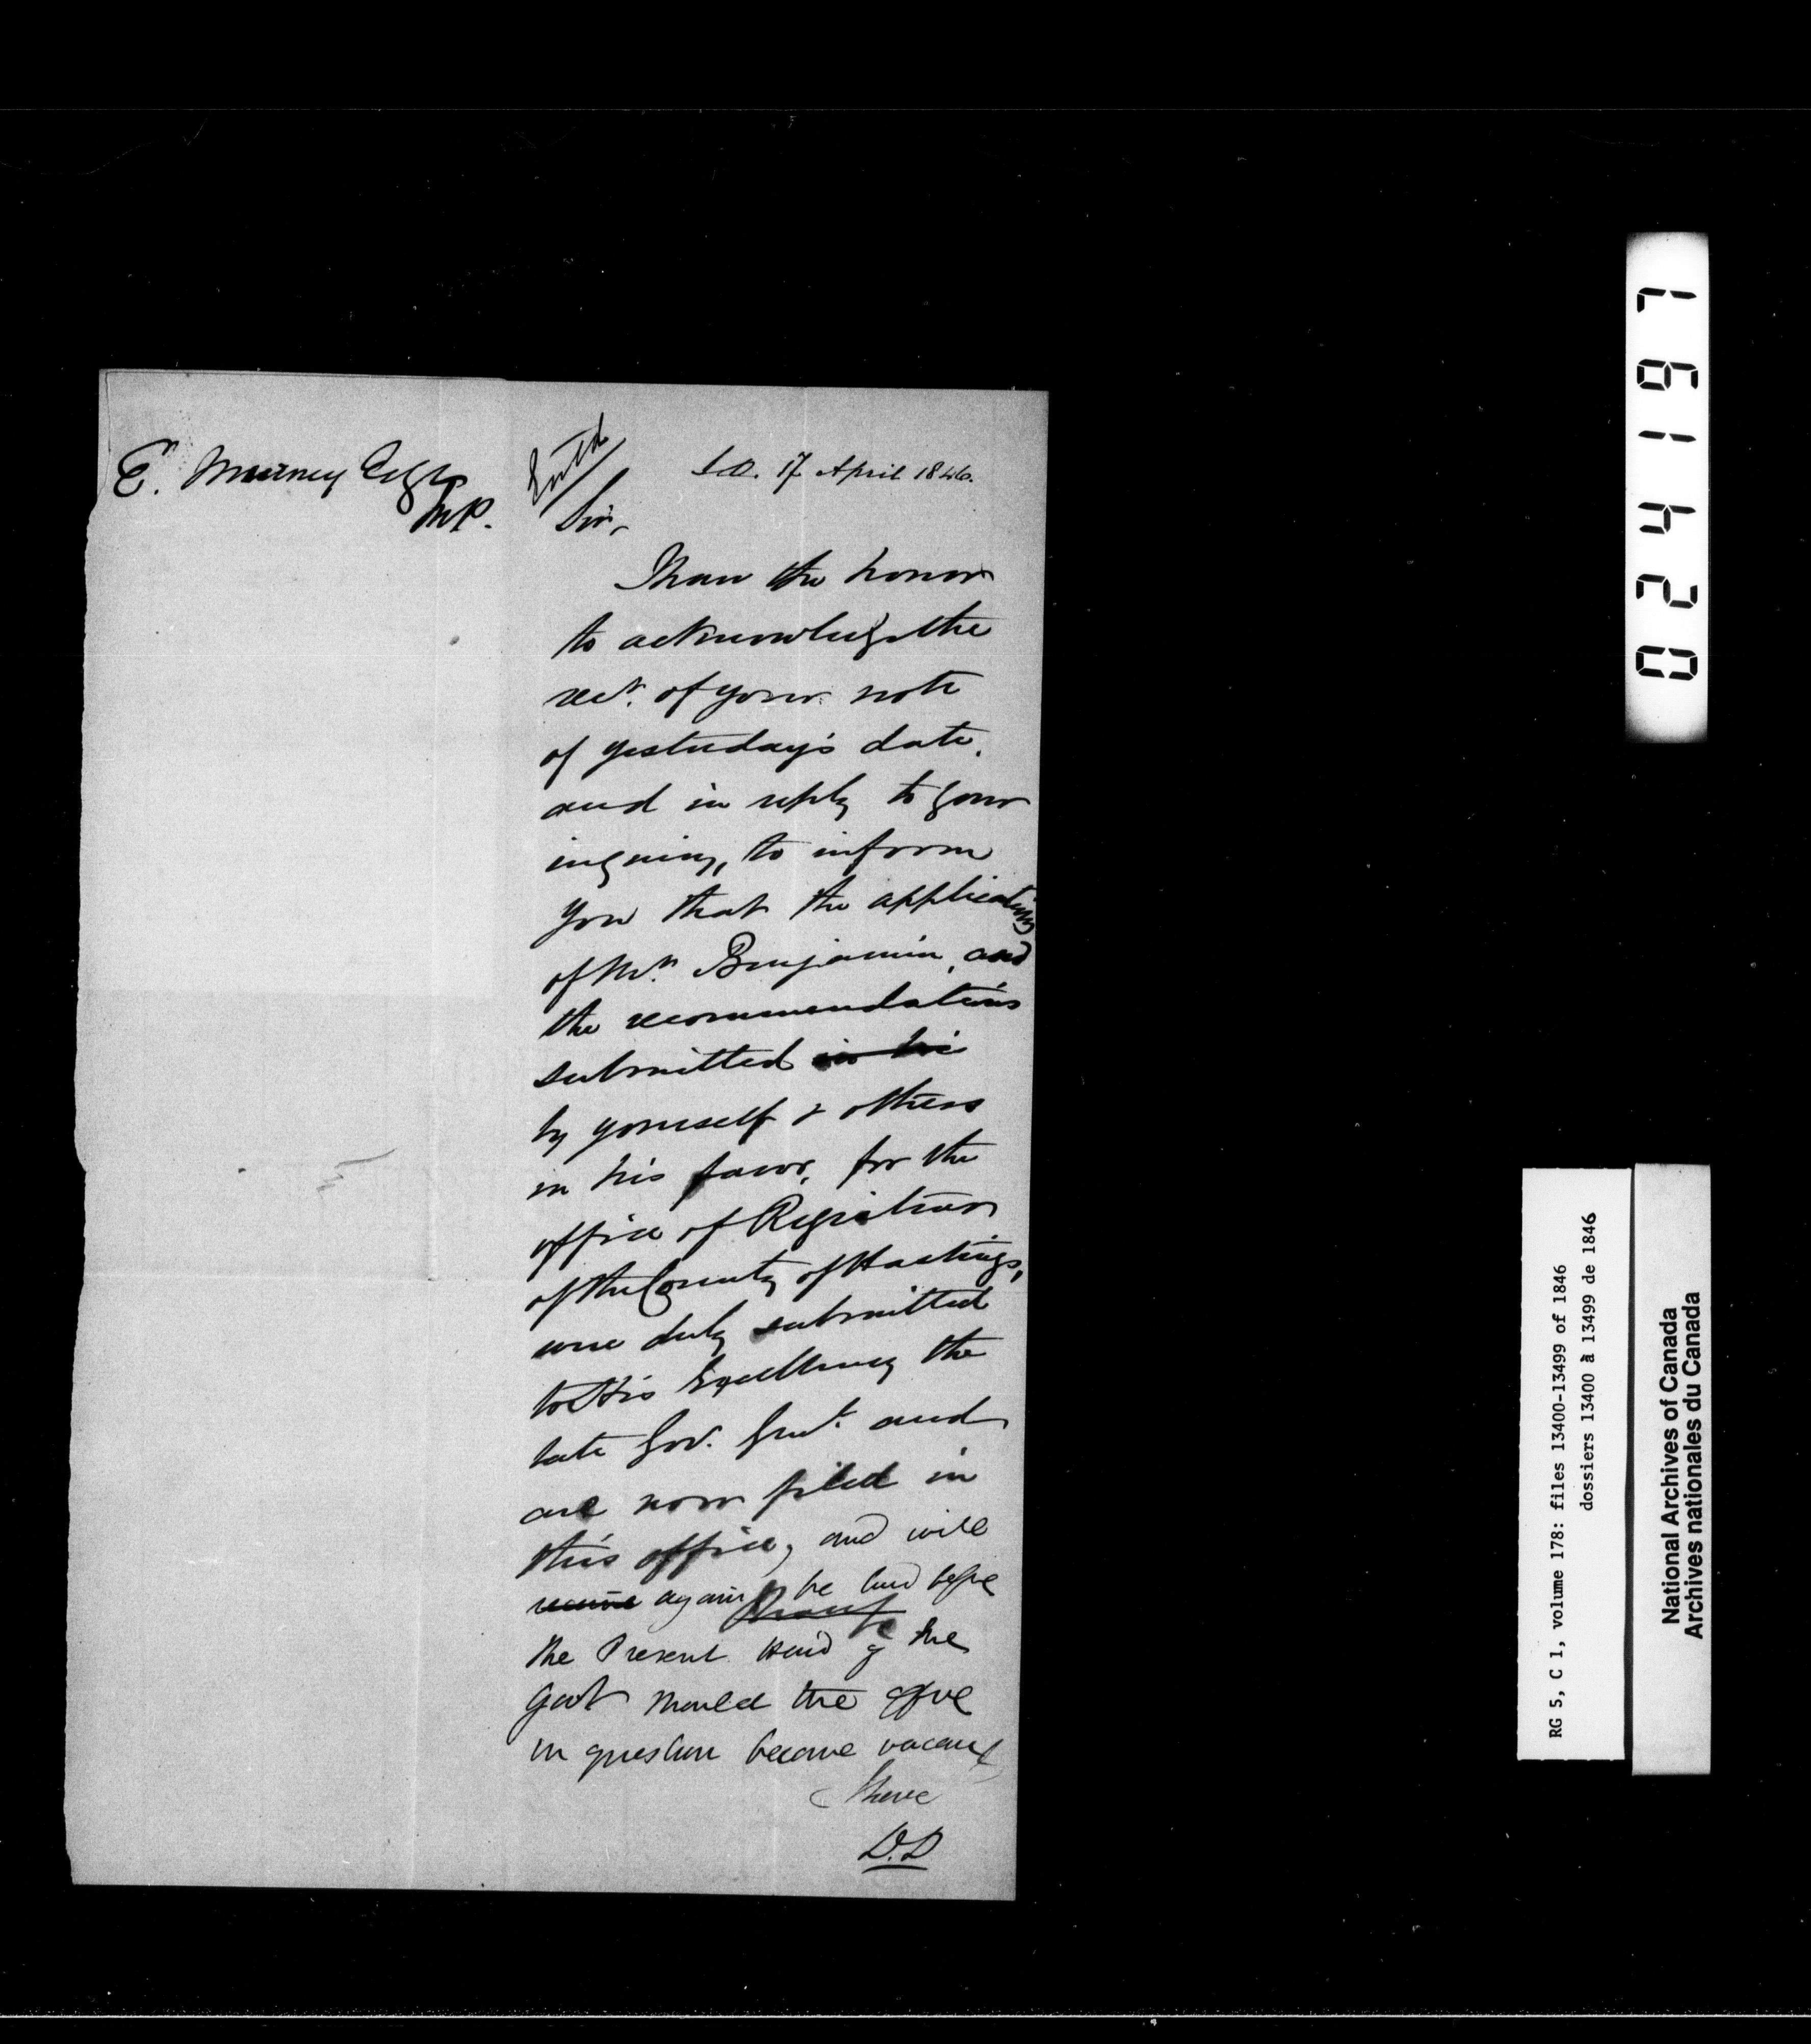 E. Murney Esqr
M.P.
Entd
S.O. 17 April 1846.
Sir,
I have the honor
to acknowledge the
rect. of your note
of yesterday's date,
and in reply to your
inquiry, to inform
you that the application
of Mr. Benjamin, and
the recommendations
submitted in his
by yourself & others
in his favor, for the
office of Registrar
of the County of Hastings,
were duly submitted
to His Excellency the
late Gov. Genl. and
are now filed in
this office, and will
receive again be laid before
the Present Head of the
Govt should the office
in question become vacant
I have
D.D
024197
RG 5, C 1, volume 178: files 13400-13499 of 1846
dossiers 13400 à 13499 de 1846
National Archives of Canada
Archives nationales du Canada